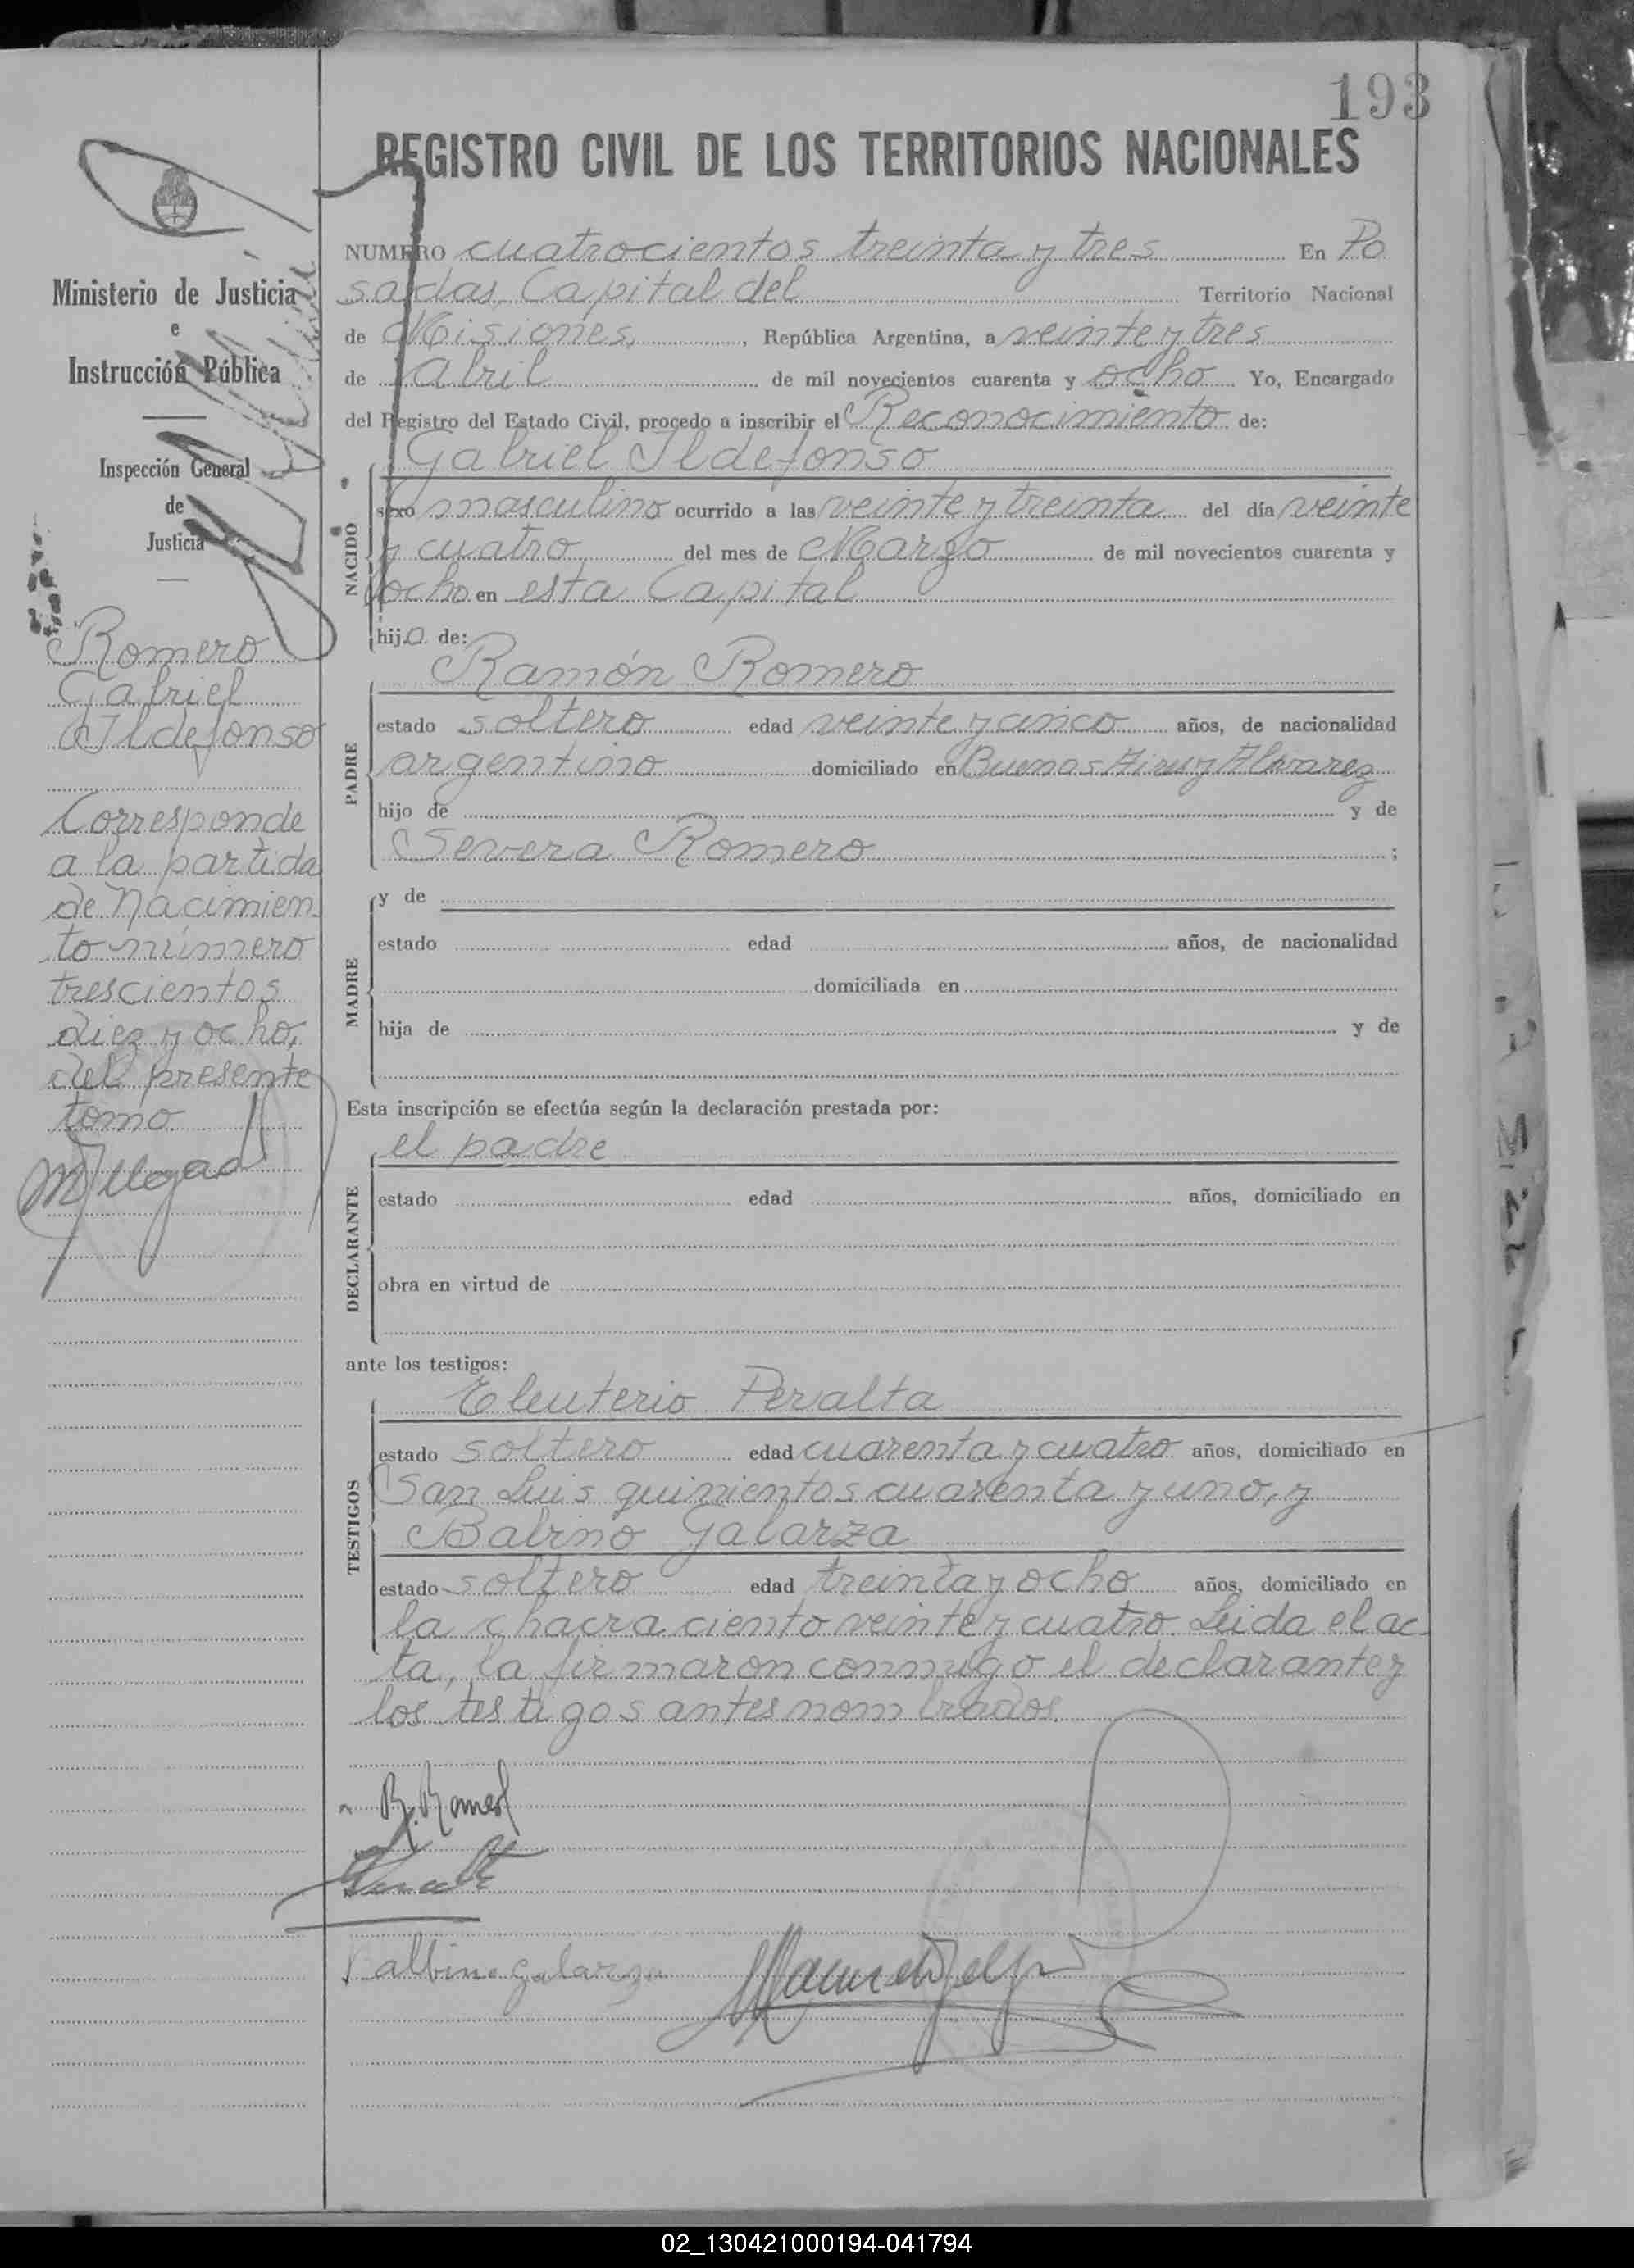 193
REGISTRO CIVIL DE LOS TERRITORIOS NACIONALES
Ministerio de Justicia
e
Instrucción Pública
Inspección General
de
Justicia
Romero
Gabriel
Ildefonso
Corresponde
a la partida
de Nacimien
to número
trescientos
diez y ocho,
del presente
tomo
NUMERO cuatrocientos treinta y tres En Po
sadas, Capital del Territorio Nacional
de Misiones, República Argentina, a veinte y tres
de Abril de mil novecientos cuarenta y ocho Yo, Encargado
del Registro del Estado Civil, procedo a inscribir el Reconocimiento de:
Gabriel Ildefonso
NACIDO
sexo masculino ocurrido a las veinte y treinta del día veinte
y cuatro del mes de Marzo de mil novecientos cuarenta y
ocho en esta Capital
hijo de:
Ramón Romero
PADRE
estado soltero edad veinte y cinco años, de nacionalidad
argentino domiciliado en Buenos Aires y Alvarez
hijo de y de
Severa Romero ;
MADRE
y de
estado edad años, de nacionalidad
domiciliada en
hija de y de
Esta inscripción se efectúa según la declaración prestada por:
el padre
DECLARANTE
estado edad años, domiciliado en
obra en virtud de
ante los testigos:
Eleuterio Peralta
TESTIGOS
estado soltero edad cuarenta y cuatro años, domiciliado en
San Luis quinientos cuarenta y uno, y
Balbino Galarza
estado soltero edad treinta y ocho años, domiciliado en
la chacra ciento veinte y cuatro. Leida el ac-
ta, la firmaron conmigo el declarante y
los testigos antes nombrados.
R. Romero
Balbino Galarza
02_130421000194-041794